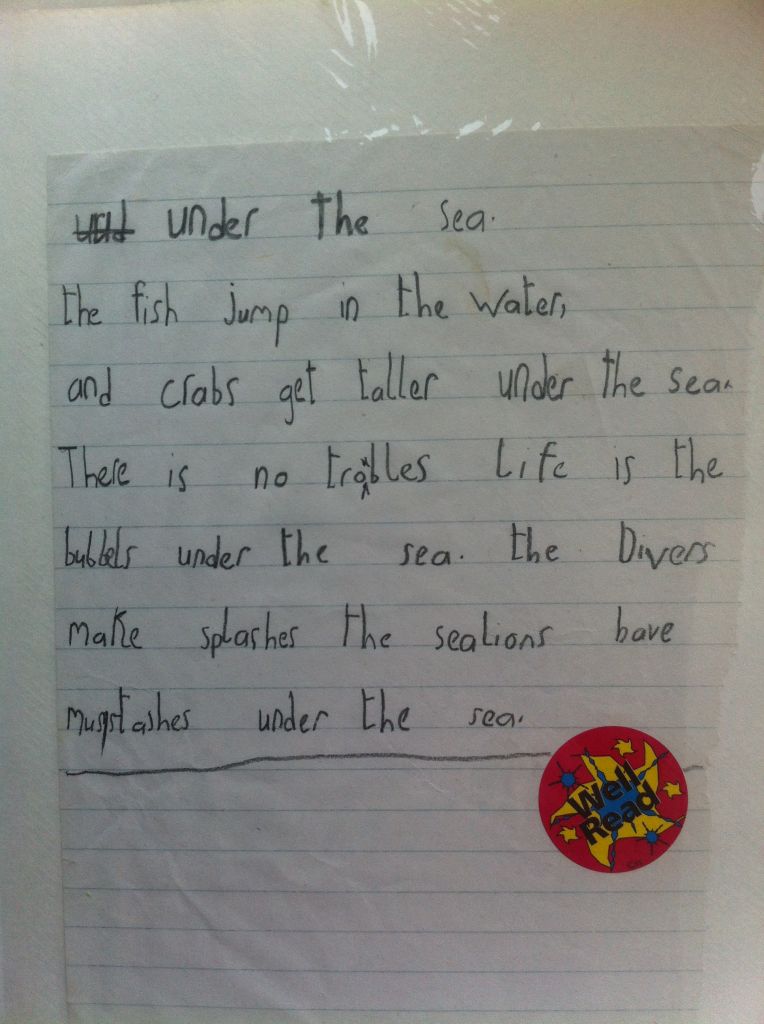 under The sea.
the fish jump in the water,
and crabs get taller under the sea.
There is no troubles Life is the
bubbels under the sea. the Divers
make splashes The sealions have
mustashes under the sea.
Well
Read